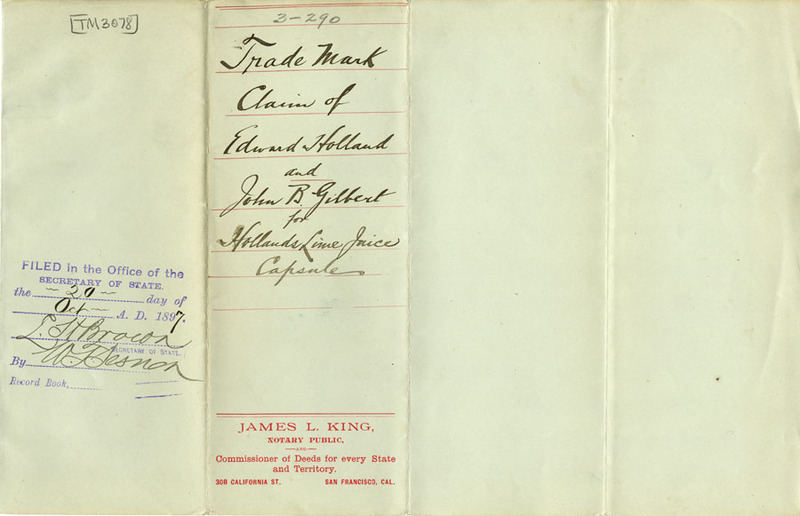 TM3078
FILED in the Office of the
SECRETARY OF STATE,
the 20 day of
Oct A. D. 1897.
L. H. Brown
SECRETARY OF STATE.
By
Record Book,
3-290
Trade Mark
Claim of
Edward Holland
and
John B. Gilbert
for
Hollands Lime Juice
Capsule
JAMES L. KING,
NOTARY PUBLIC,
AND
Commissioner of Deeds for every State
and Territory.
308 CALIFORNIA ST. SAN FRANCISCO, CAL.